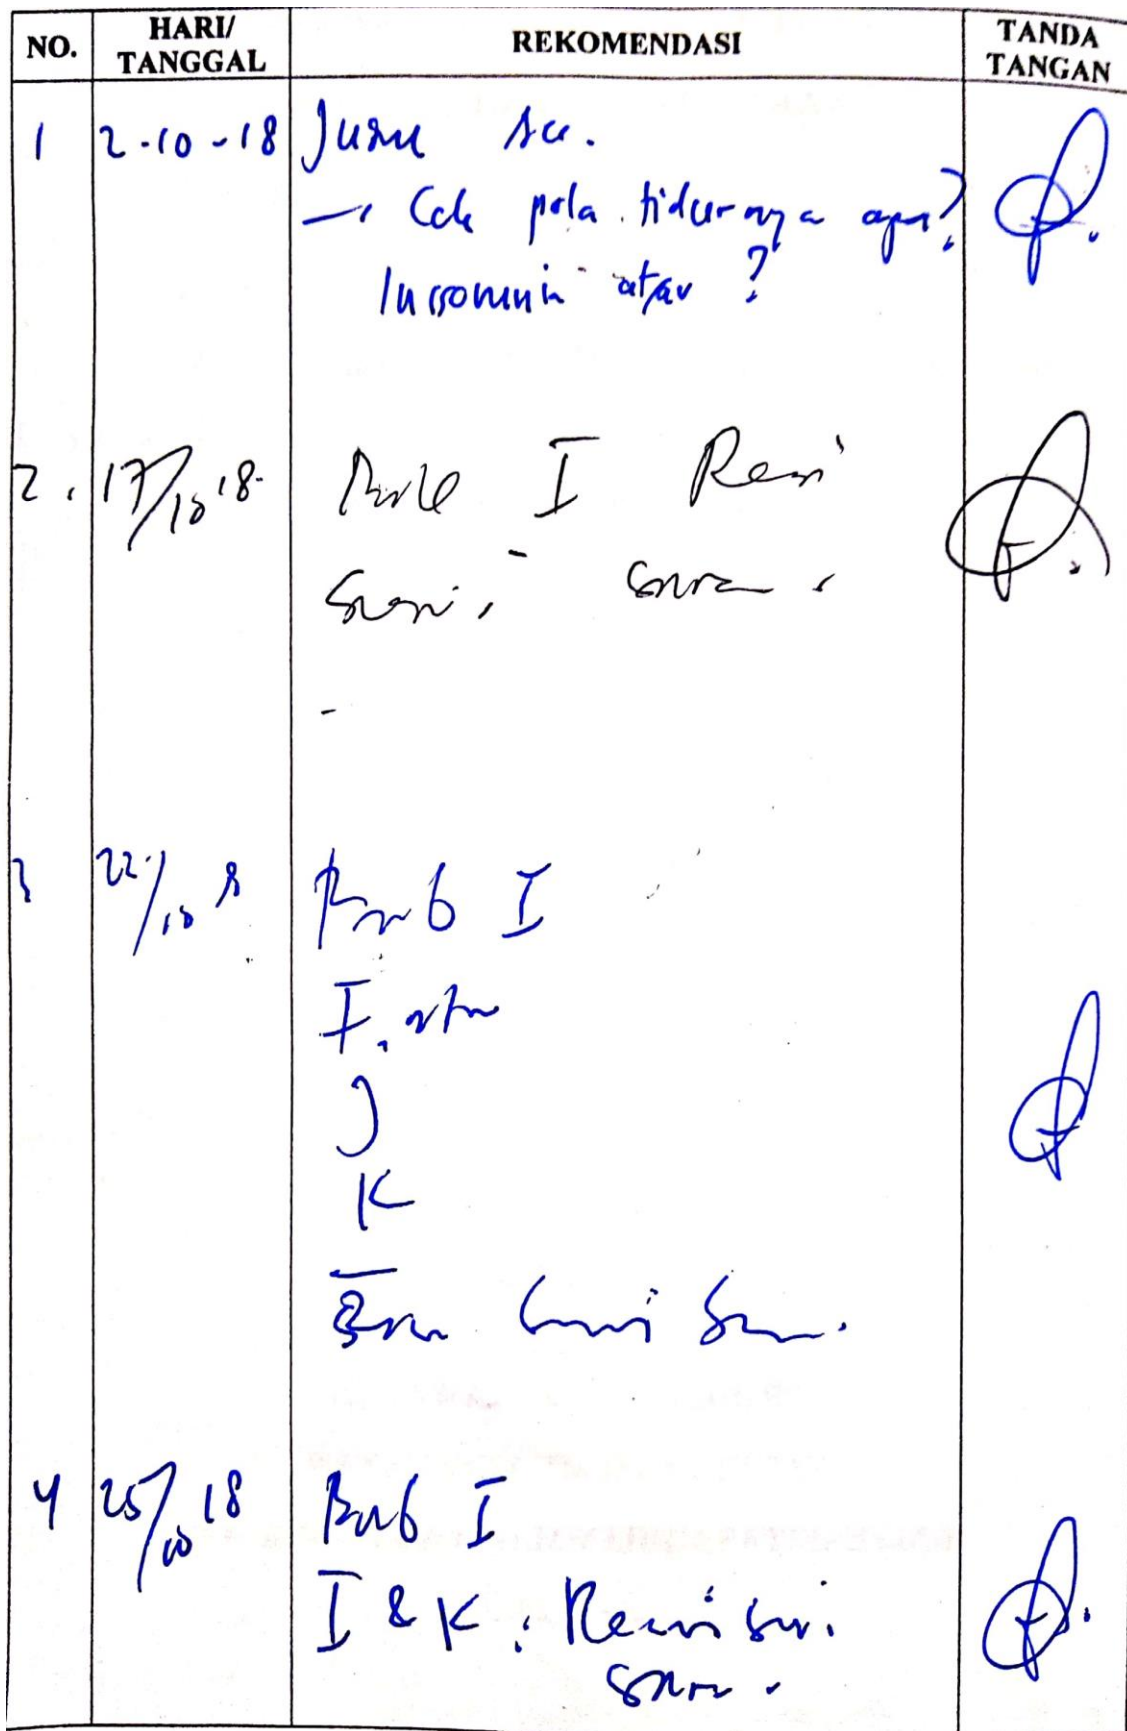 NO. HARI/ TANGGAL REKOMENDASI TANDA TANGAN
1 2-10-18 Judul Acc.
→ Cek pola tidurnya apa?
Insomnia atau ?
2. 17/10 18. Bab I Revisi
sesuai saran.
3 22/10 18 Bab I
I. 
J
K
sesuai saran.
4 25/10 18 Bab I
I & K : Revisi sesuai
saran.